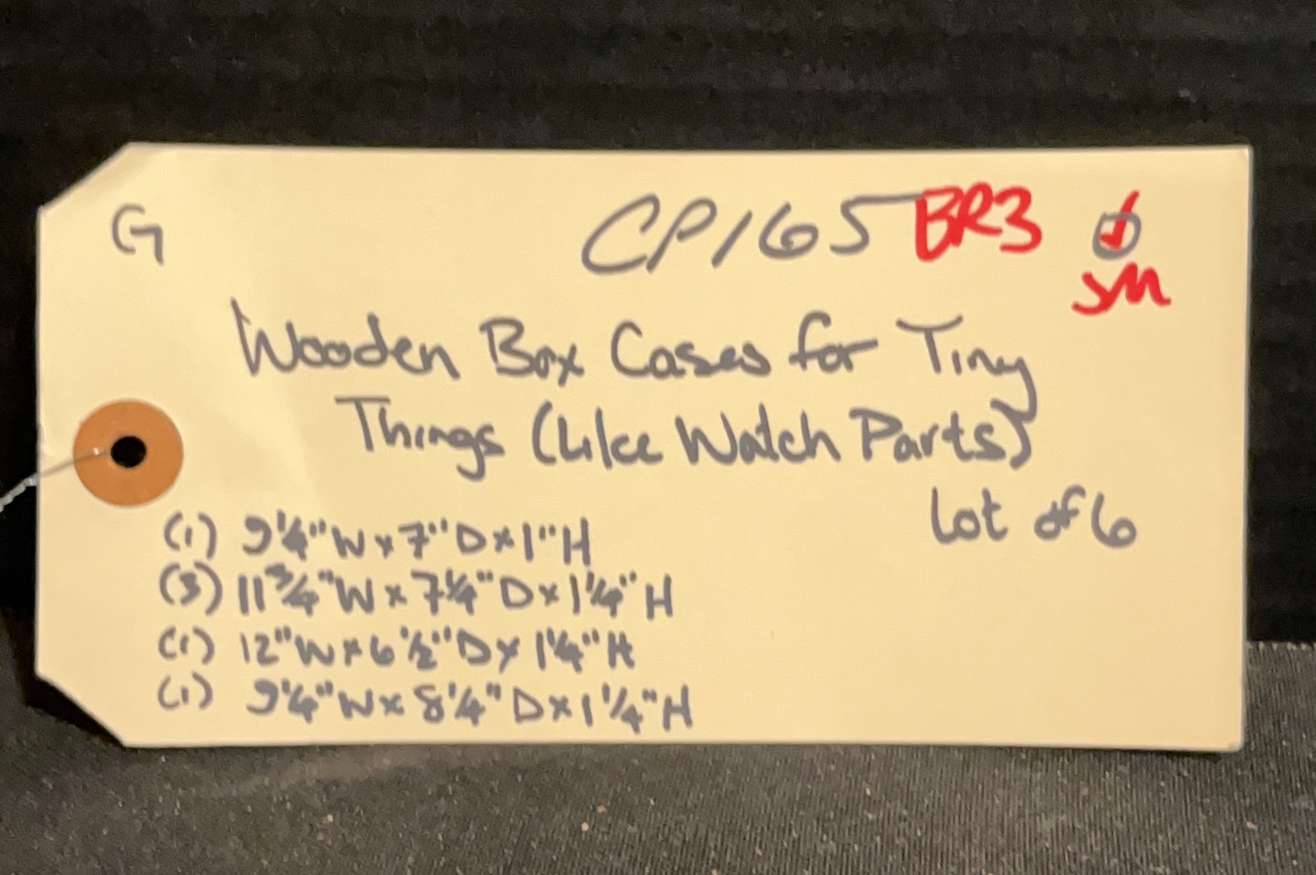 G CP165 BR3
SM
Wooden Box Cases for Tiny
Things (Like Watch Parts)
Lot of 6
(1) 9 1/4" W x 7" D x 1" H
(3) 11 3/4" W x 7 1/4" D x 1 1/4" H
(1) 12" W x 6 1/2" D x 1 1/4" H
(1) 9 1/4" W x 8 1/4" D x 1 1/4" H